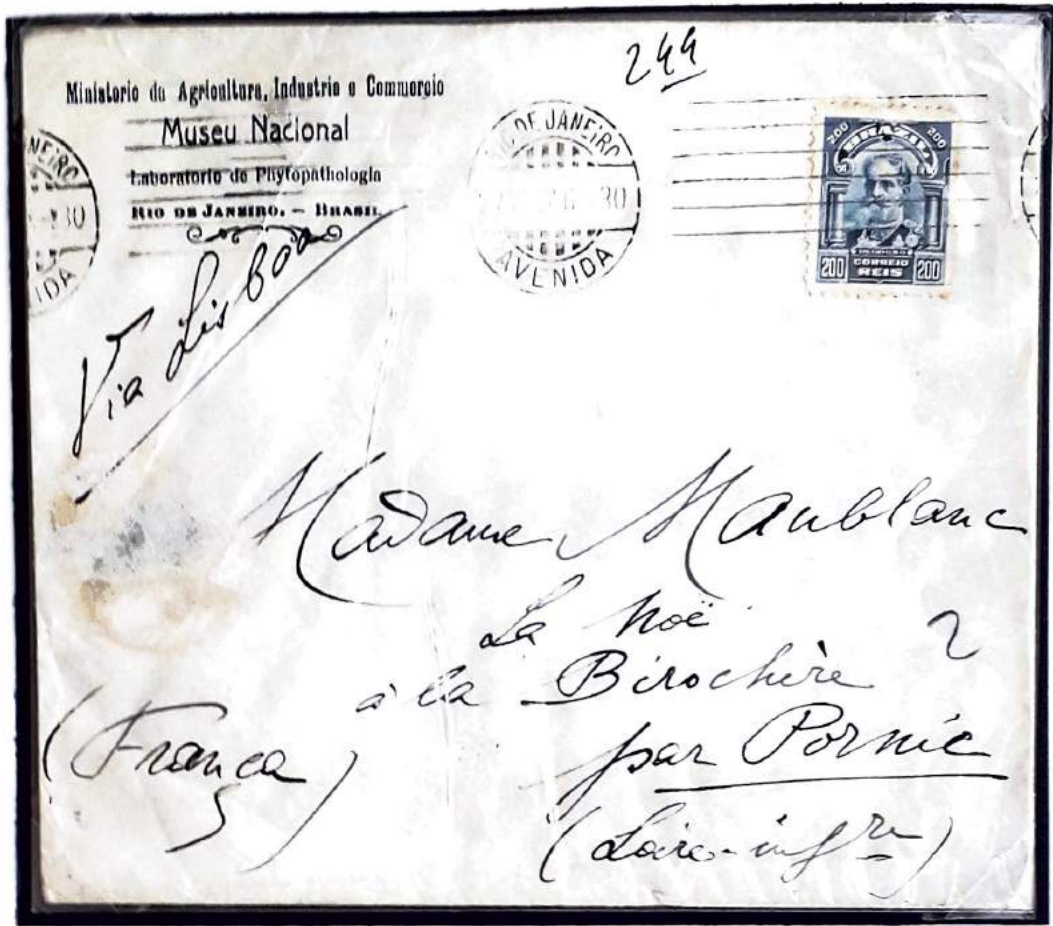 244
Ministerio da Agricultura, Industria e Commercio
Museu Nacional
Laboratorio de Phytopathologia
RIO DE JANEIRO. – BRASIL
NEIRO
30
IDA
RIO DE JANEIRO
30
AVENIDA
200 200
BRAZIL
CORREIO
200 REIS 200
Via Lisboa
Madame Maublanc
La Noë
à la Birochère
par Pornic
(Loire-infre)
(França)
2